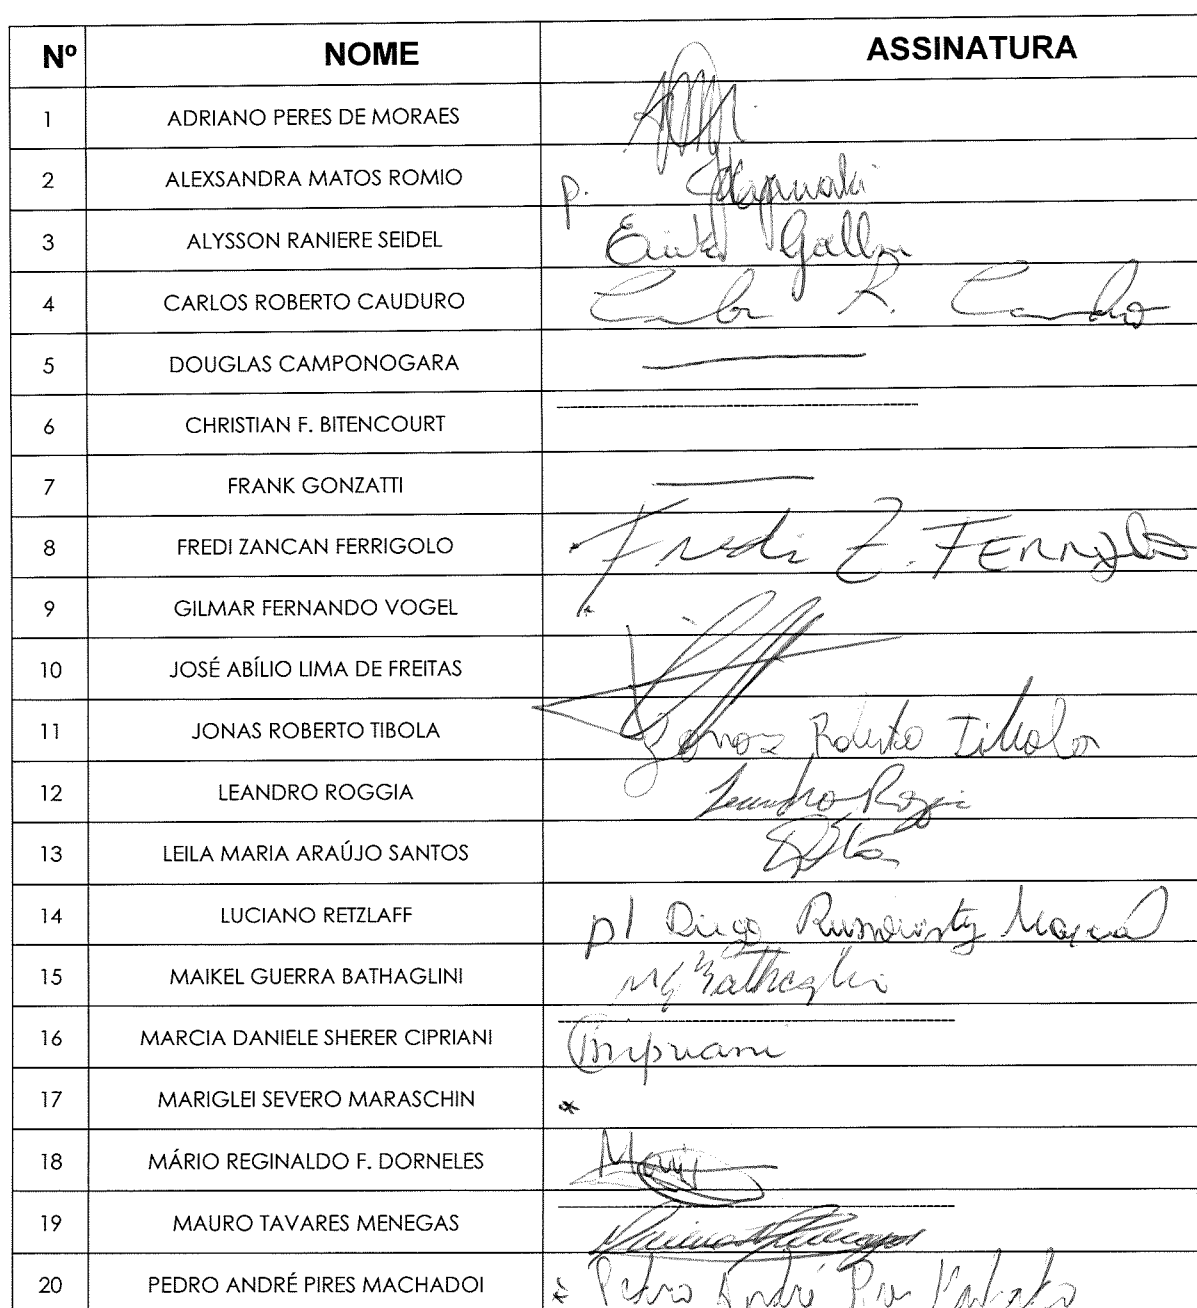 Nº NOME ASSINATURA
1 ADRIANO PERES DE MORAES
2 ALEXSANDRA MATOS ROMIO p.
3 ALYSSON RANIERE SEIDEL Erika Gallon
4 CARLOS ROBERTO CAUDURO Carlos R. Cauduro
5 DOUGLAS CAMPONOGARA
6 CHRISTIAN F. BITENCOURT
7 FRANK GONZATTI
8 FREDI ZANCAN FERRIGOLO * Fredi Z. FERRIGOLO
9 GILMAR FERNANDO VOGEL
10 JOSÉ ABÍLIO LIMA DE FREITAS
11 JONAS ROBERTO TIBOLA Jonas Roberto Tibola
12 LEANDRO ROGGIA Leandro Roggia
13 LEILA MARIA ARAÚJO SANTOS
14 LUCIANO RETZLAFF p/ Diego
15 MAIKEL GUERRA BATHAGLINI MGBathaglini
16 MARCIA DANIELE SHERER CIPRIANI Cipriani
17 MARIGLEI SEVERO MARASCHIN *
18 MÁRIO REGINALDO F. DORNELES
19 MAURO TAVARES MENEGAS
20 PEDRO ANDRÉ PIRES MACHADOI * Pedro André Pires Machado